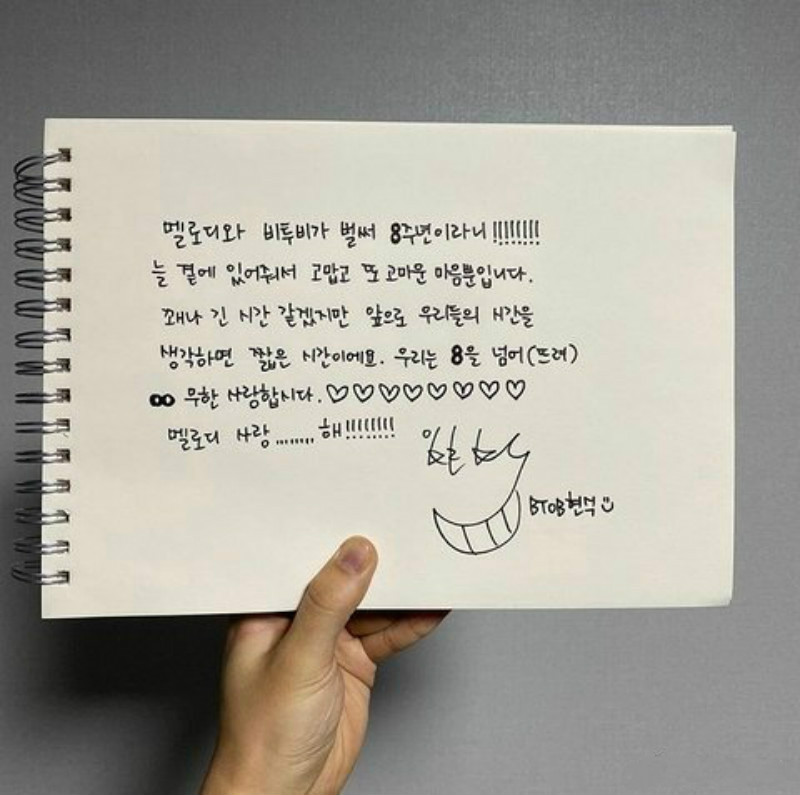 멜로디와 비투비가 벌써 8주년이라니!!!!!!!!
늘 곁에 있어줘서 고맙고 또 고마운 마음뿐입니다.
꽤나 긴 시간 같겠지만 앞으로 우리들의 시간을
생각하면 짧은 시간이에요. 우리는 8을 넘어(뜨려)
∞ 무한 사랑합시다.♡♡♡♡♡♡♡♡
멜로디 사랑........해!!!!!!!!
BTOB현식